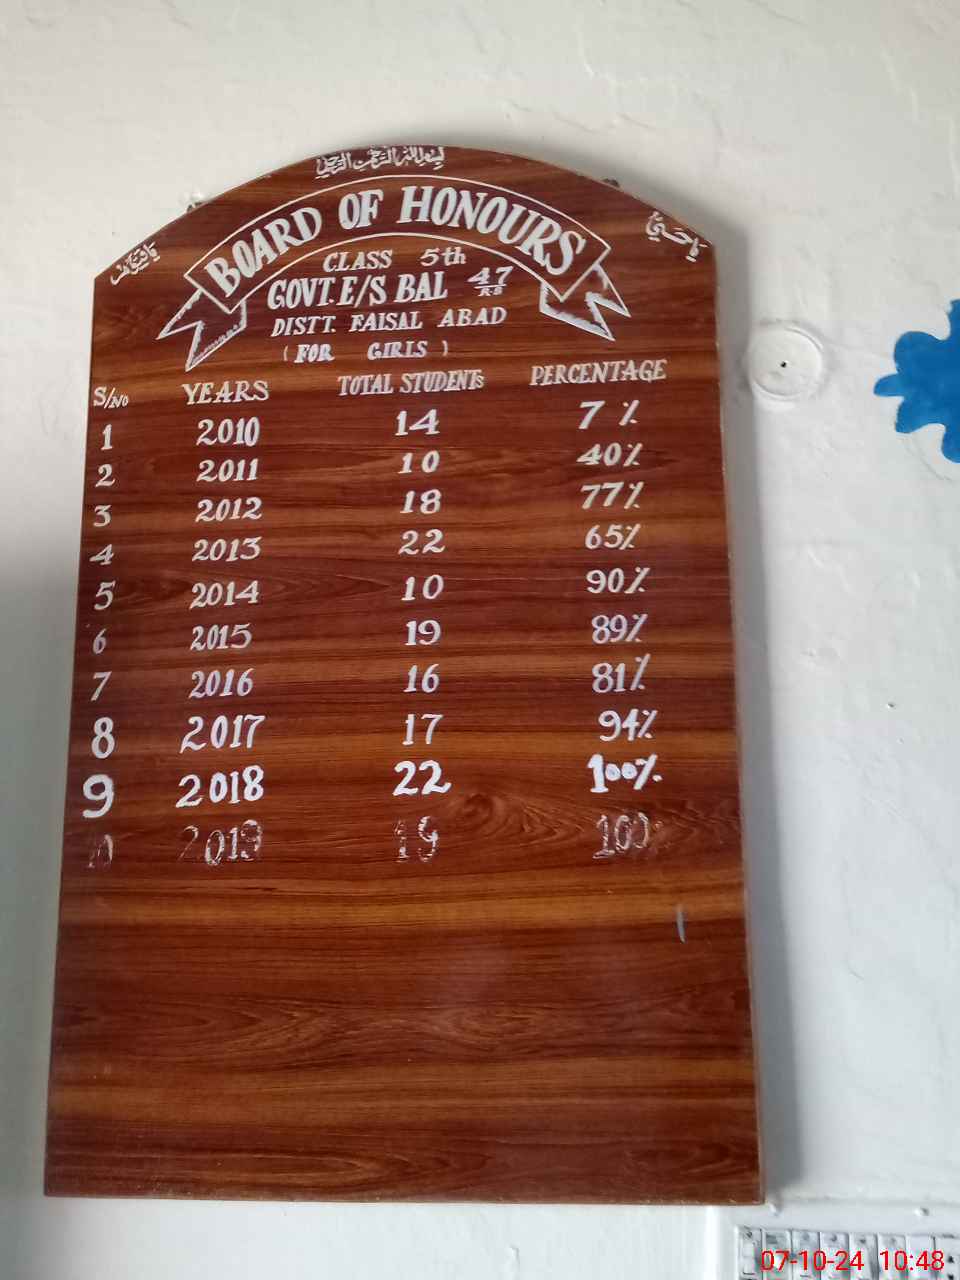 بسم اللہ الرحمن الرحیم
یا حی
BOARD OF HONOURS
CLASS 5th
GOVT. E/S BAL 47/RB
DISTT. FAISAL ABAD
(FOR GIRLS)
S/NO YEARS TOTAL STUDENTS PERCENTAGE
1 2010 14 7 %
2 2011 10 40%
3 2012 18 77%
4 2013 22 65%
5 2014 10 90%
6 2015 19 89%
7 2016 16 81%
8 2017 17 94%
9 2018 22 100%
10 2019 19 100
07-10-24 10:48